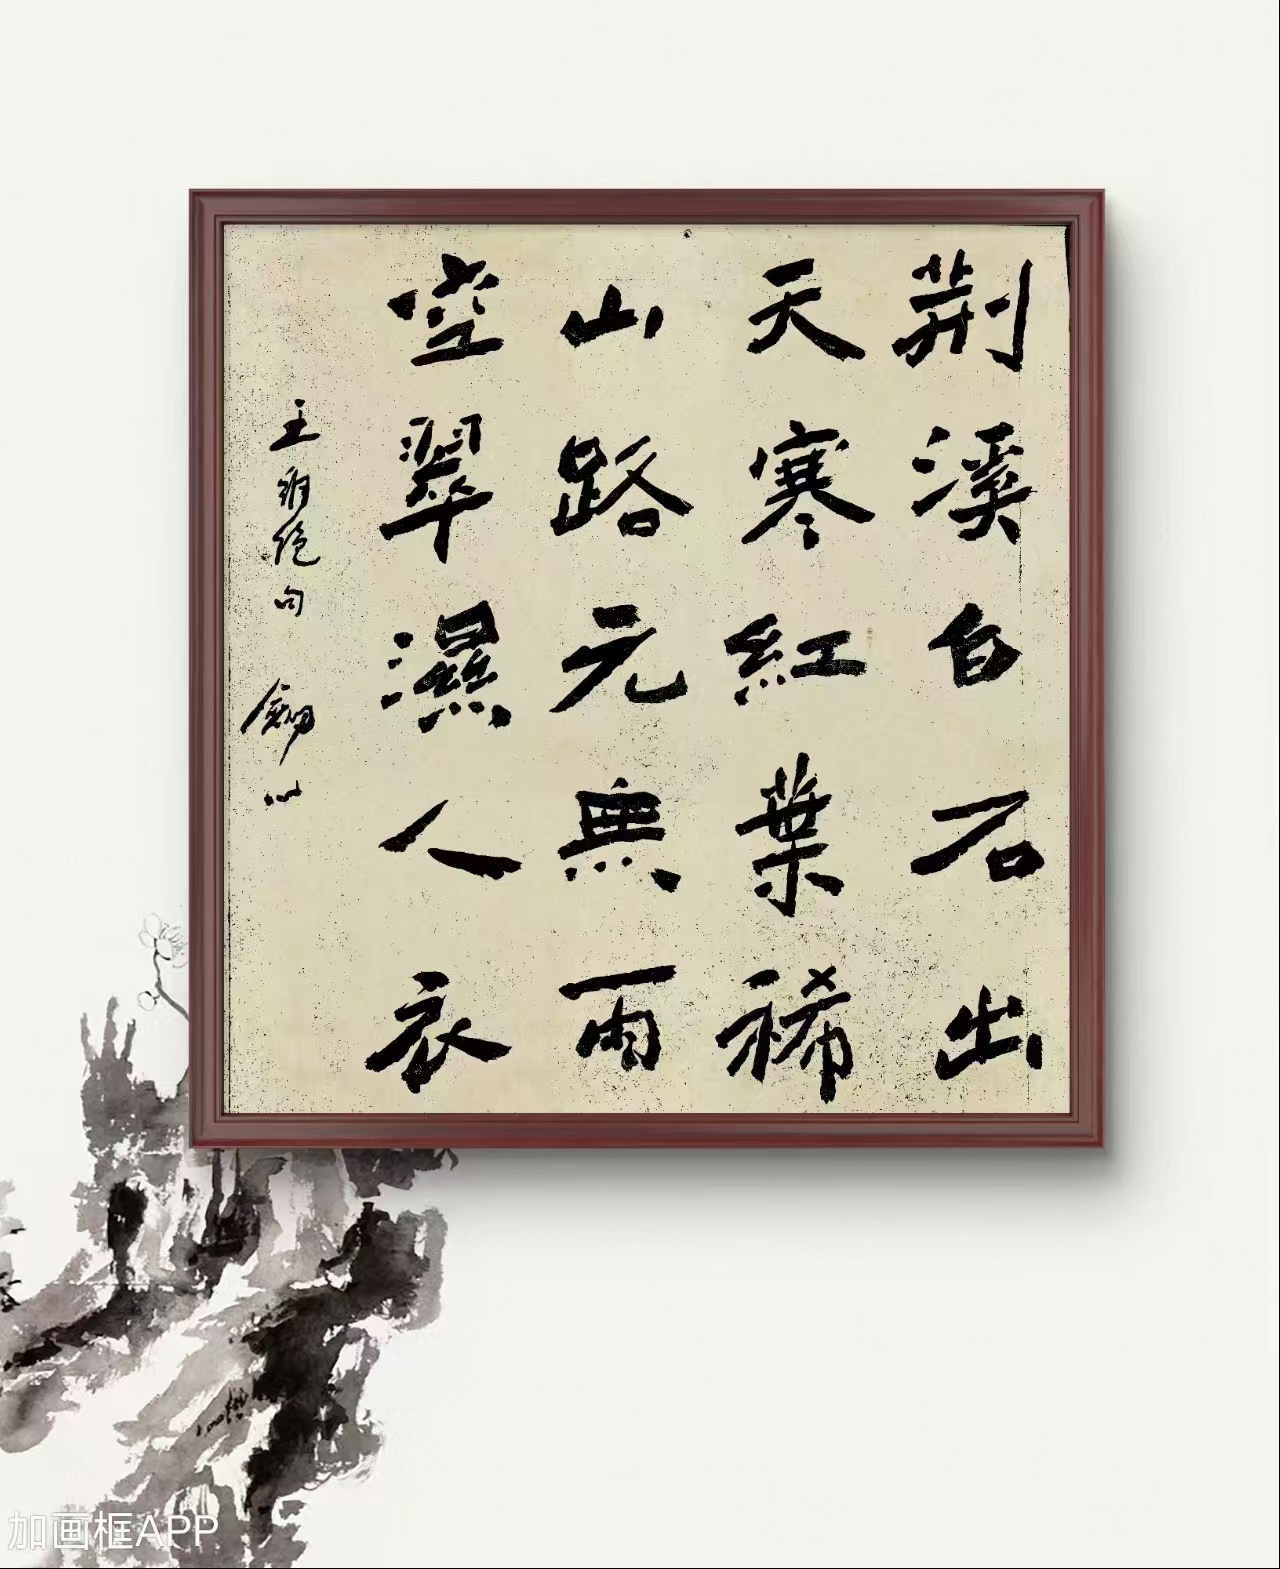 荆溪白石出
天寒紅葉稀
山路元無雨
空翠濕人衣
王維絶句
加画框APP